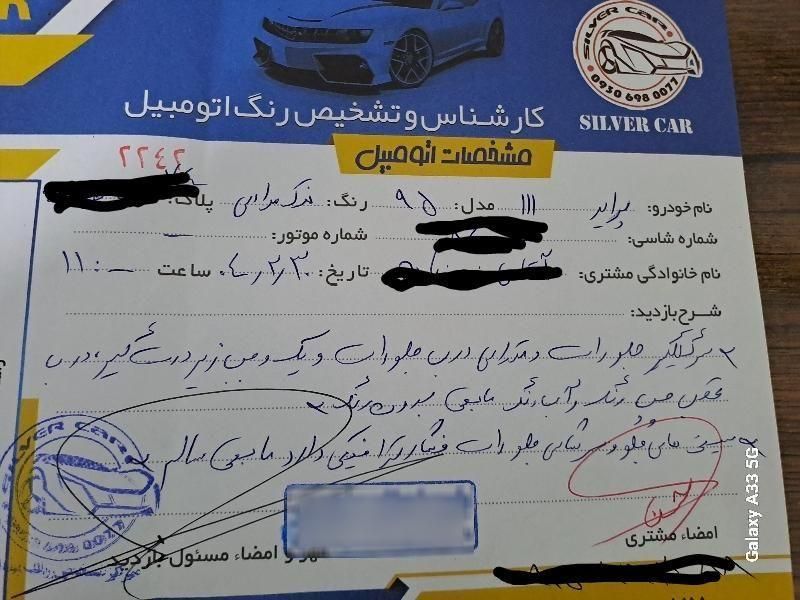 SILVER CAR
0930 698 0077
SILVER CAR
کارشناس و تشخیص رنگ اتومبیل
مشخصات اتومبیل
۲۲۴۲
نام خودرو: پراید ۱۱۱ مدل: ۹۵ رنگ: پلاک:
شماره شاسی: شماره موتور: —
نام خانوادگی مشتری: تاریخ: ۰۴/۲/۳۰ ساعت ۱۱:۰۰
شرح بازدید:
گلگیر جلو راست و ستون درب جلو راست و یک وجبی زیر درستگیر، درب
عقب رنگ و آبرنگ مابقی بدون رنگ
سینی های جلو و شاسی جلو راست فشار فیزیکی دارد مابقی سالم
امضاء مشتری
مهر و امضاء مسئول بازدید
SILVER CAR
0930 698 0077
Galaxy A33 5G